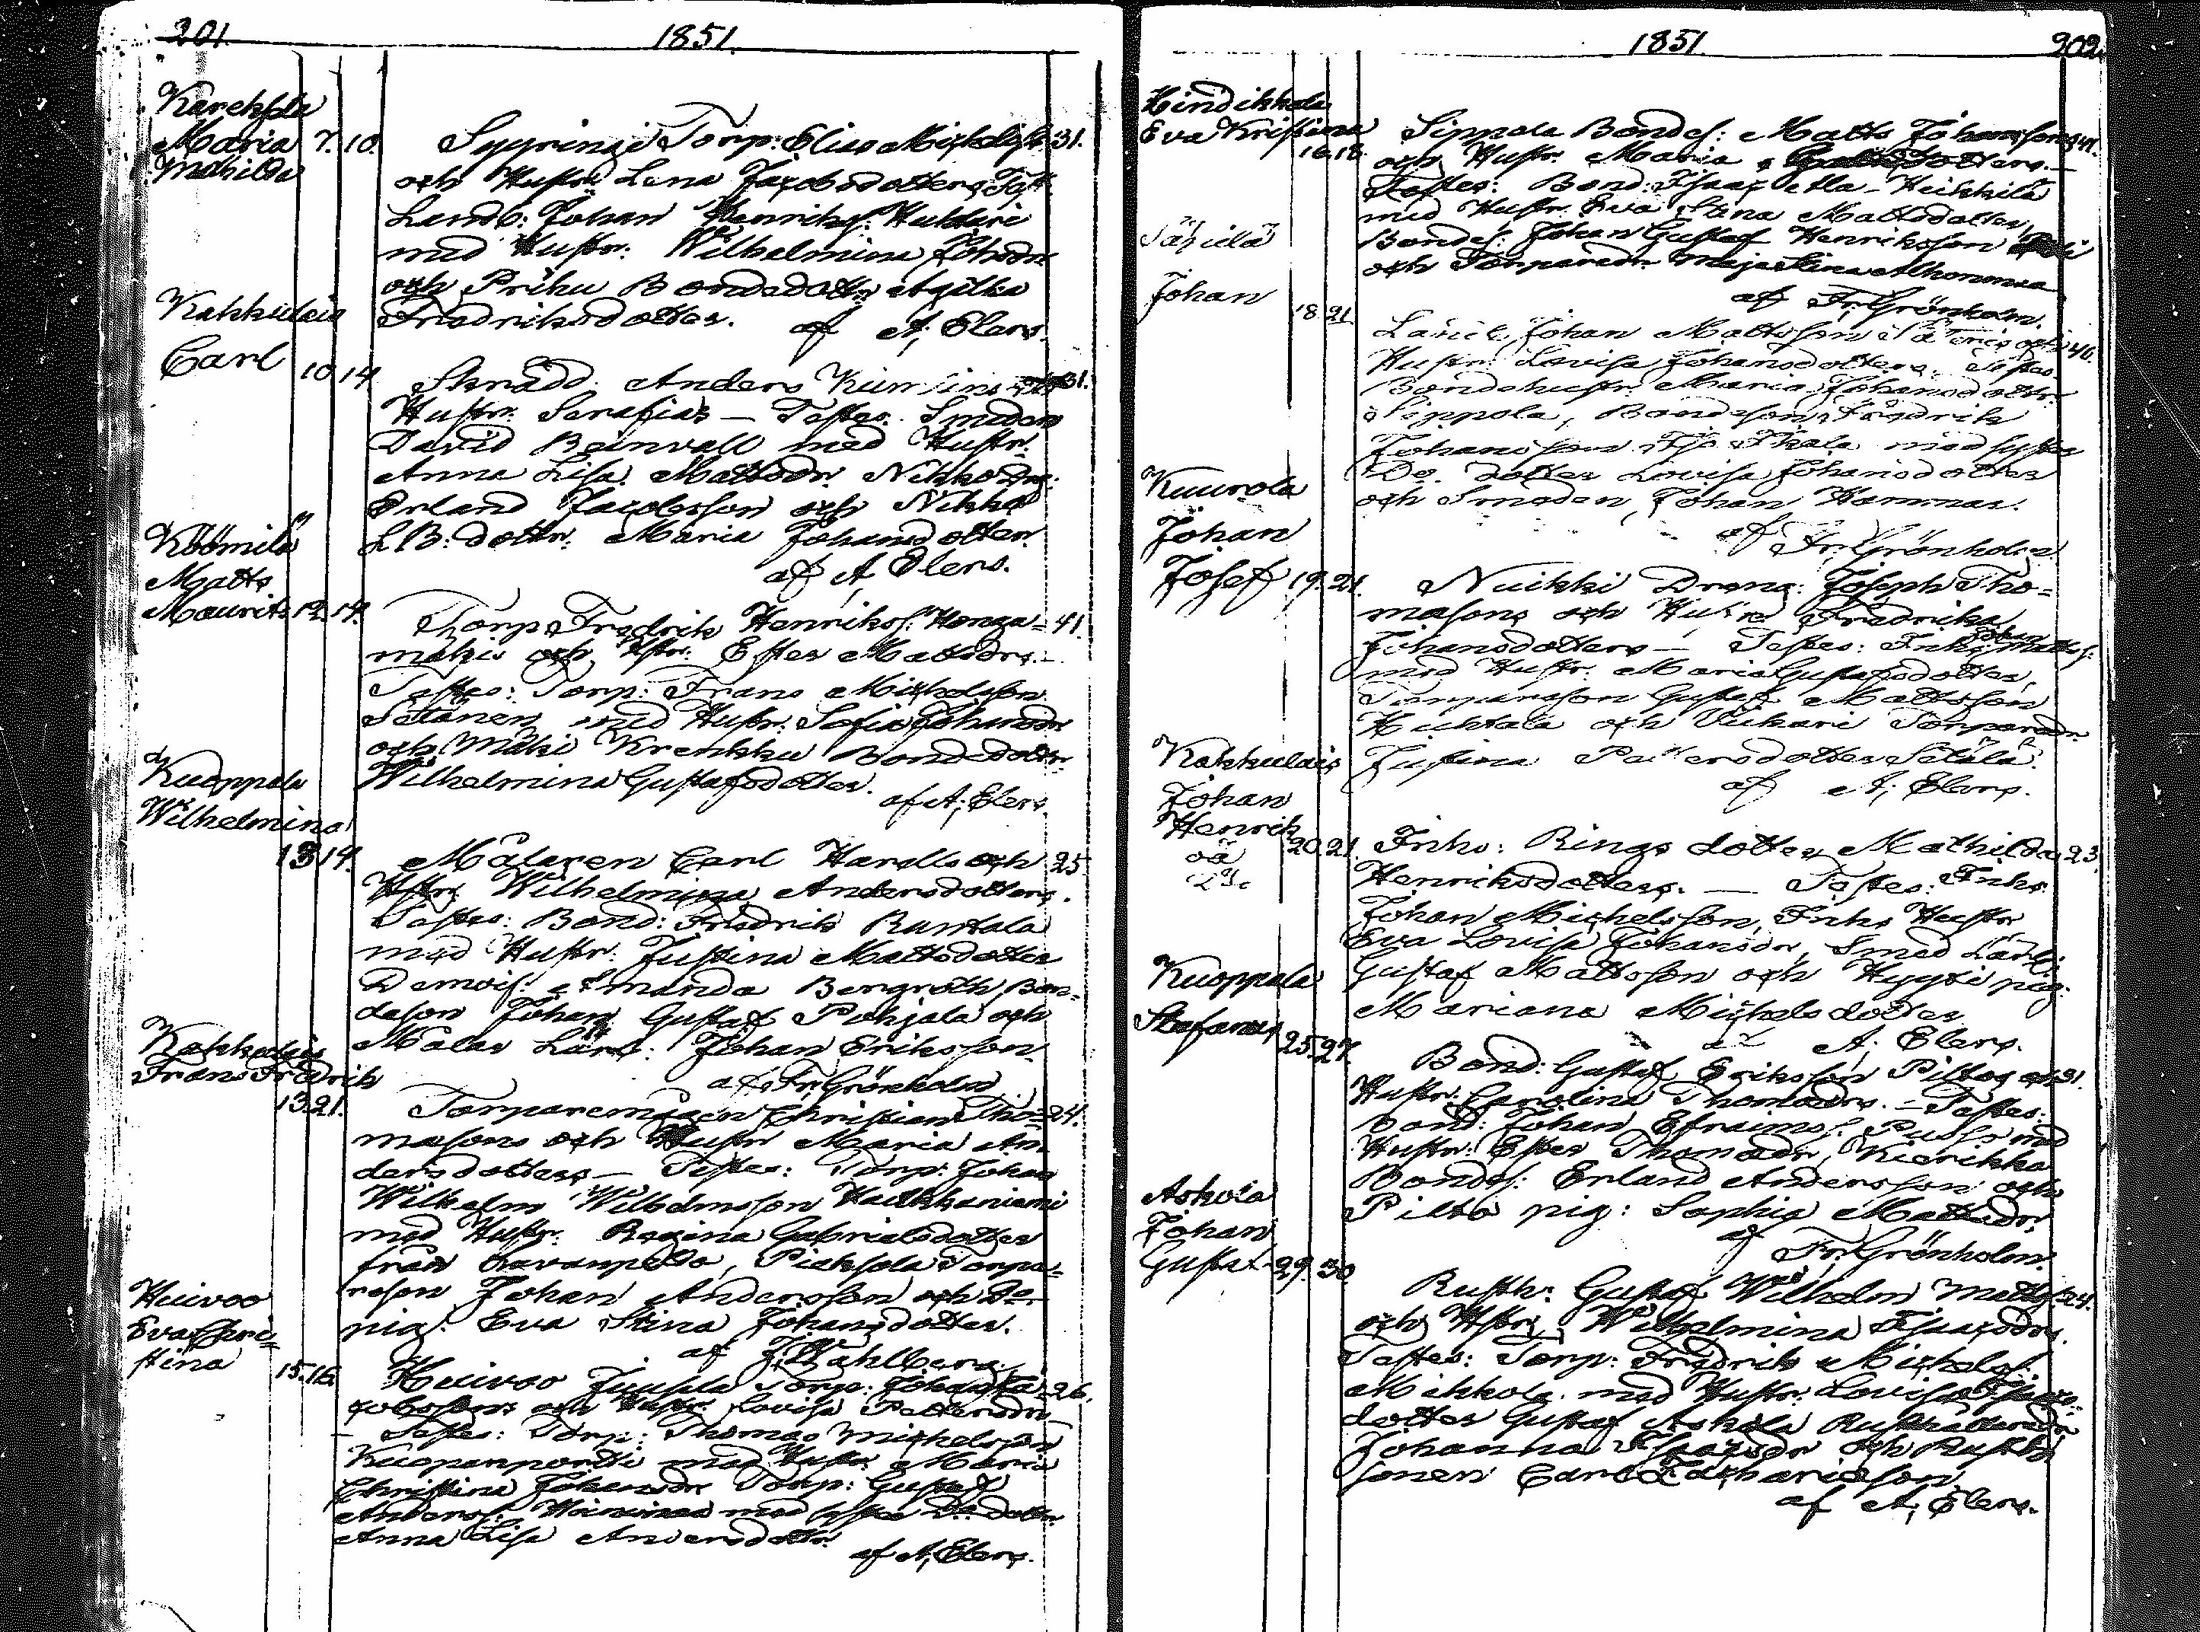 201.
1851.
Karehpla
Maria 7. 10.
Mathilda
Syyringi Torp: Elias Michelss: 31.
och Hustru Lena Jacobsdotters Test:
Landb: Johan Henrikss: Huhtari
med Hustr: Wilhelmina Johsdr
och Prihu Bondedottr
Fredriksdotter. af A, Elers.
Kakkulais
Carl 10. 14.
Skrädd: Anders 31.
Hustr: Serafias — Testes. Smeden
David Reinvall med Hustr:
Anna Lisa Mattsdr. Nikko Drg:
Erland Jacobsson och Nikko
L.B. dottr: Maria Johansdotter
af A, Elers.
Köömilä
Matts
Maurits 12. 14.
Torp Fredrik Henrikss: Honga= 41.
mäkis och Hstr: Ester Mattsdrs. —
Testes: Torp: Frans Michelsson
Setänen med Hustr: Sofia Johansdr
och Mäki Krenkku Bondedottr
Wilhelmina Gustafsdotter.
af A, Elers.
Kuoppala
Wilhelmina
13 14.
Målaren Carl Harells och 25
Hstr: Wilhelmina Andersdotters.
Testes: Bond: Fredrik Runtala
med Hustr: Justina Mattsdotter
Demois: Amanda Bergroth Bon=
deson Johan Gustaf Pohjala och
Målar Lärl: Johan Eriksson.
af Fr. Grönholm
Kakkulais
Frans Fredrik
13. 21.
Torparemågen Christian Tho= 24.
masons och Hustr Maria An=
dersdotters — Testes: Torp: Johan
Wilhelm Wilhelmsson
med Hustr: Regina Gabrielsdotter
från Ravanpelto, Pieksola Torpa=
reson Johan Andersson och Do
pig: Eva Stina Johansdotter.
af J. Wahlberg.
Huivoo
Eva Chri=
stina 15. 16.
Huivoo Juusela Torp: Johan Ja= 26.
cobssons och Hustr: Lovisa Pettersdr
— Testes: Torp: Thomas Michelsson
Kuoparportti med Hustr Maria
Christina Johansdr Torp: Gustaf
Anderss: med syster Do dottr
Anna Lisa Andersdottr.
af A, Elers.
1851.
202.
Hindikkala
Eva Kristina
16. 18.
Sippola Bondes: Matts Johanssons 41.
och Hustr. Maria dotters. —
Testes: Bond: Isaac Ala-Heikkilä
med Hustr. Eva Stina Mattsdotter,
Bondes: Johan Gustaf Henriksson
och Torparedr Maja Stina
af Fr. Grönholm.
Johan 18. 21.
Johan Mattsson och 40.
Hustr: Lovisa Johansdotters. Testes
Bondehustr: Maria Johansdottr.
Sippola, Bondeson Fredrik
Johansson med syster
Do. dotter Lovisa Johansdotter
och Smeden Johan Hammar.
af Fr. Grönholm
Kuurola
Johan
Josef 19. 21.
Nuikki Dreng: Joseph Tho=
masons och Hustru Fredrika
Johansdotters — Testes: Inhs Johan Matts:
med Hustr: Maria Gustafsdotter,
Torpareson Gustaf Mattsson
Huhtala och Uukari Torparedr
Justina Pettersdotter Setälä.
af A, Elers.
Kakkulais
Johan
Henrik
oä
20. 21.
Inhs: Rings dotter Mathilda 23.
Henriksdotters. — Testes: Inhs
Johan Michelsson, Inhs Hustr
Eva Lovisa Johansdr, Smed Lärl:
Gustaf Mattsson och Hyyti pig:
Mariana Michelsdotter
af A, Elers.
Kuoppala
Stefanus
25. 27.
Bond: Gustaf Eriksson Piltos och 31.
Hustr: Carolina Thomasdrs. — Testes:
Bond: Johan Efraims: med
Hustr: Ester Thomasdr, Kierikka
Bondes: Erland Andersson och
Pilto pig: Sophia Mattsdr.
af Fr. Grönholm.
Askola
Johan
Gustaf 29. 30.
Rusth: Gustaf Wilhelm Matts: 24.
och Hstr: Wilhelmina Isaacsdrs.
Testes: Torp: Fredrik Michelss:
Mikkola med Hustr: Lovisa Isaacs=
dotter Gustaf Askola Rusthållaredr
Johanna Isaacsdr och Rusth
sonen Carl Zachariesson
af A, Elers.